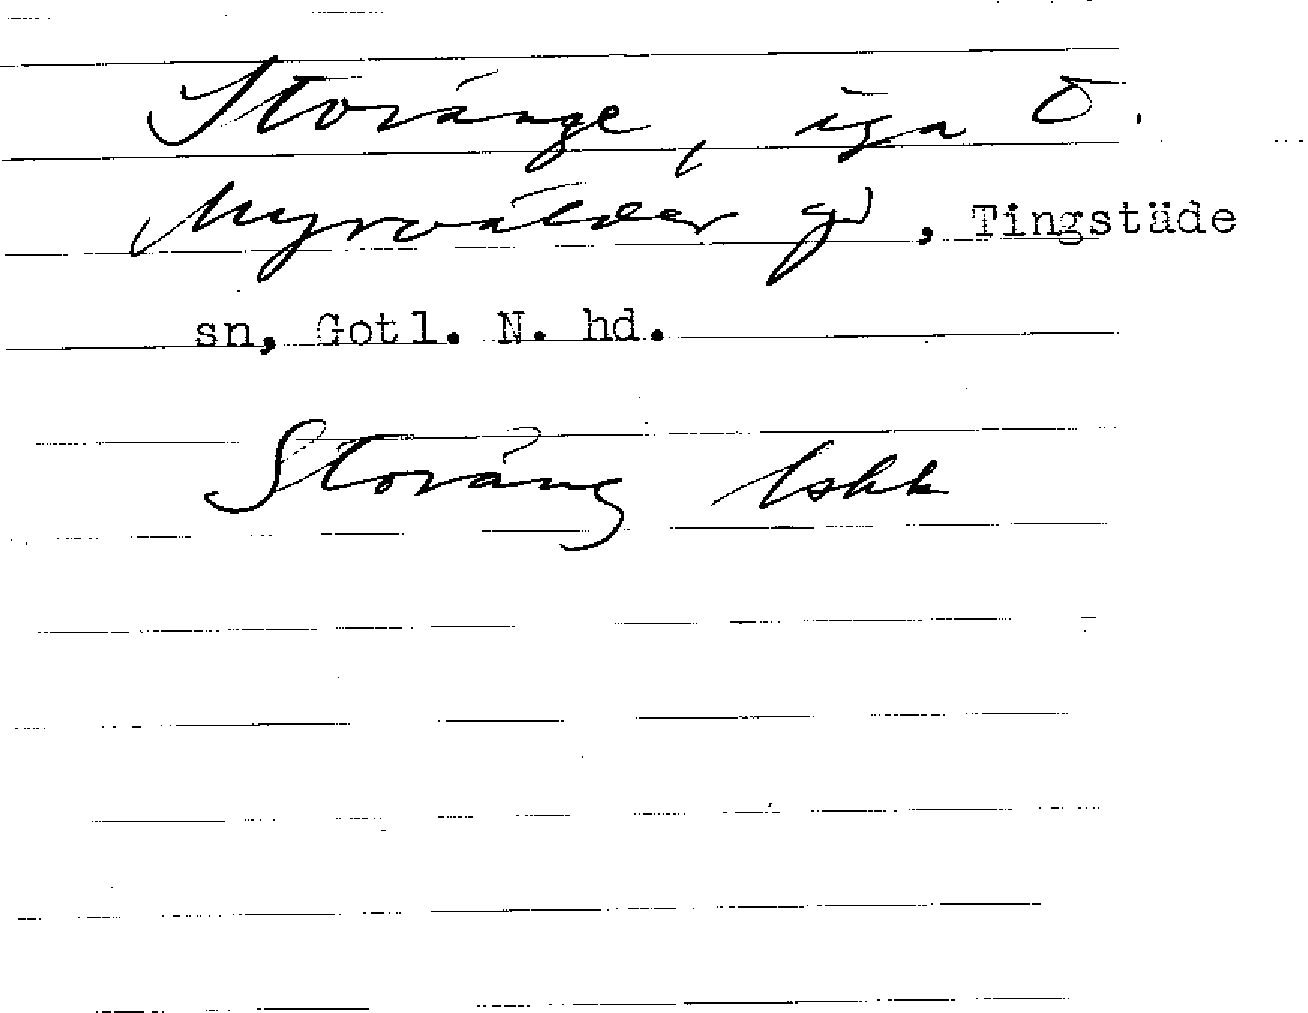 Storänge, äga Ö.
Myrvälder gd, Tingstäde
sn, Gotl. N. hd.
Storäng lskk